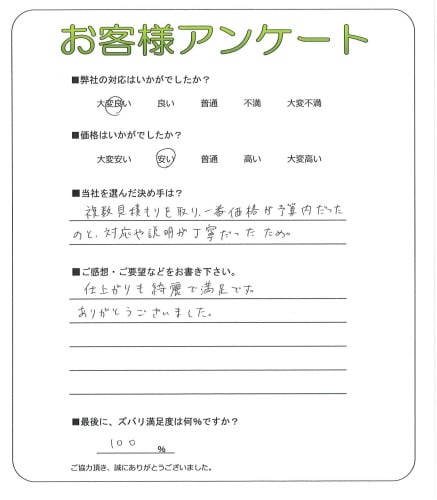 お客様アンケート
■弊社の対応はいかがでしたか？
大変良い 良い 普通 不満 大変不満
■価格はいかがでしたか？
大変安い 安い 普通 高い 大変高い
■当社を選んだ決め手は？
複数見積もりを取り、一番価格が予算内だった
のと、対応や説明が丁寧だったため。
■ご感想・ご要望などをお書き下さい。
仕上がりも綺麗で満足です。
ありがとうございました。
■最後に、ズバリ満足度は何％ですか？
100 ％
ご協力頂き、誠にありがとうございました。